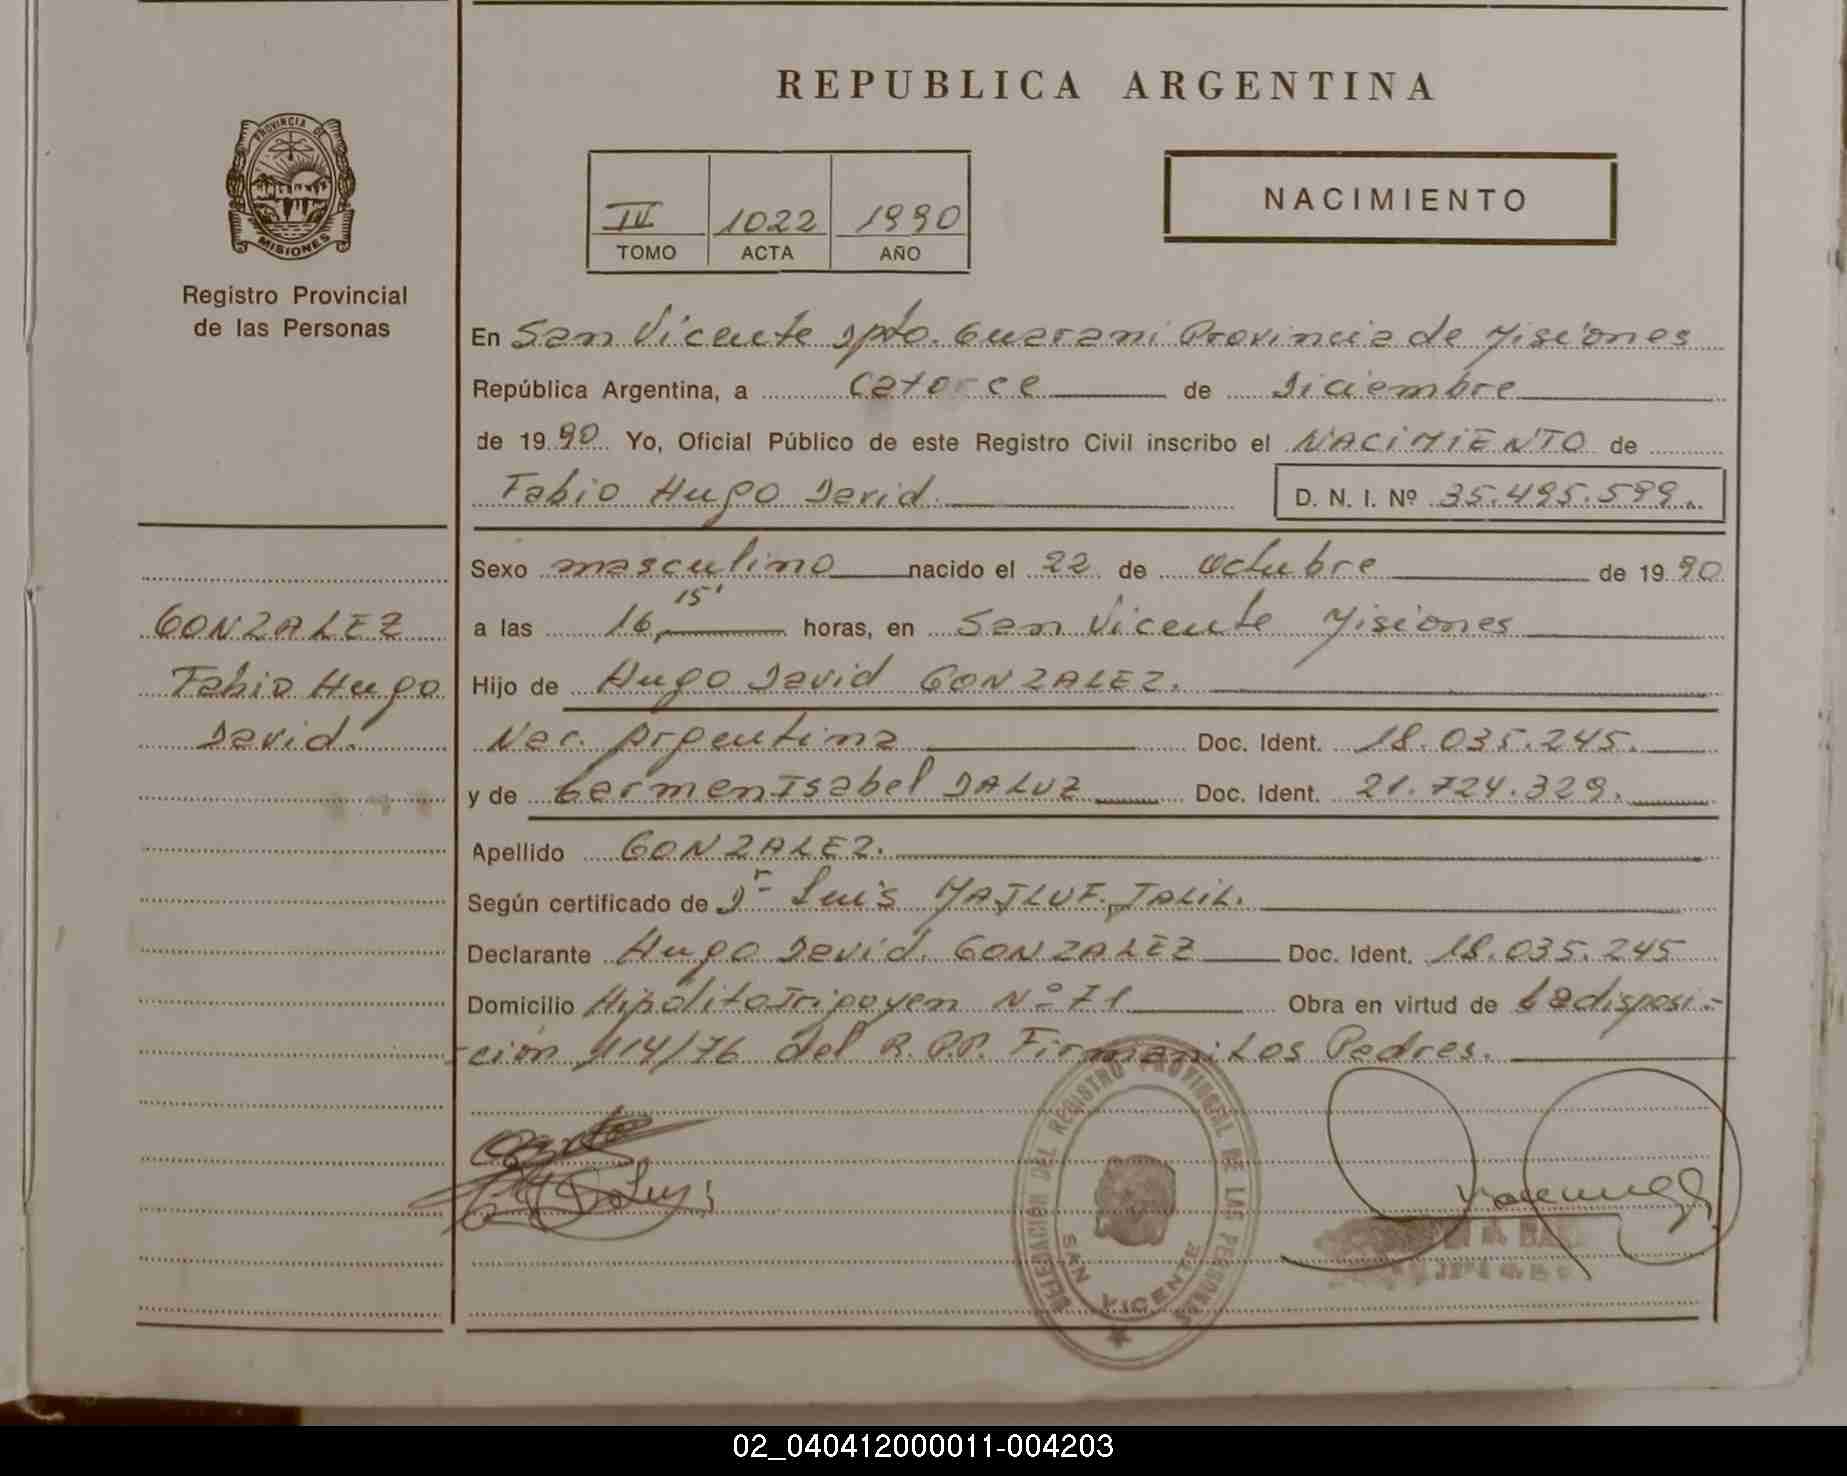 REPUBLICA ARGENTINA
PROVINCIA DE
MISIONES
Registro Provincial
de las Personas
IV 1022 1990
TOMO ACTA AÑO
NACIMIENTO
En San Vicente Dpto. Guarani Provincia de Misiones
República Argentina, a catorce de Diciembre
de 1990 Yo, Oficial Público de este Registro Civil inscribo el NACIMIENTO de
Fabio Hugo David. D. N. I. Nº 35.495.599.
Sexo masculino nacido el 22 de Octubre de 1990
a las 16,15' horas, en San Vicente Misiones
Hijo de Hugo David GONZALEZ.
Nac. Argentina Doc. Ident. 18.035.245.
y de Carmen Isabel DALUZ Doc. Ident. 21.724.329.
Apellido GONZALEZ.
Según certificado de Dr Luis MAJLUF JALIL.
Declarante Hugo David GONZALEZ Doc. Ident. 18.035.245
Domicilio Hipolito Irigoyen Nº 71 Obra en virtud de la disposi-
-ción 114/76 del R.P.P. Firman: Los Padres.
GONZALEZ
Fabio Hugo
David.
DELEGACION DEL REGISTRO PROVINCIAL DE LAS PERSONAS
SAN VICENTE
02_040412000011-004203